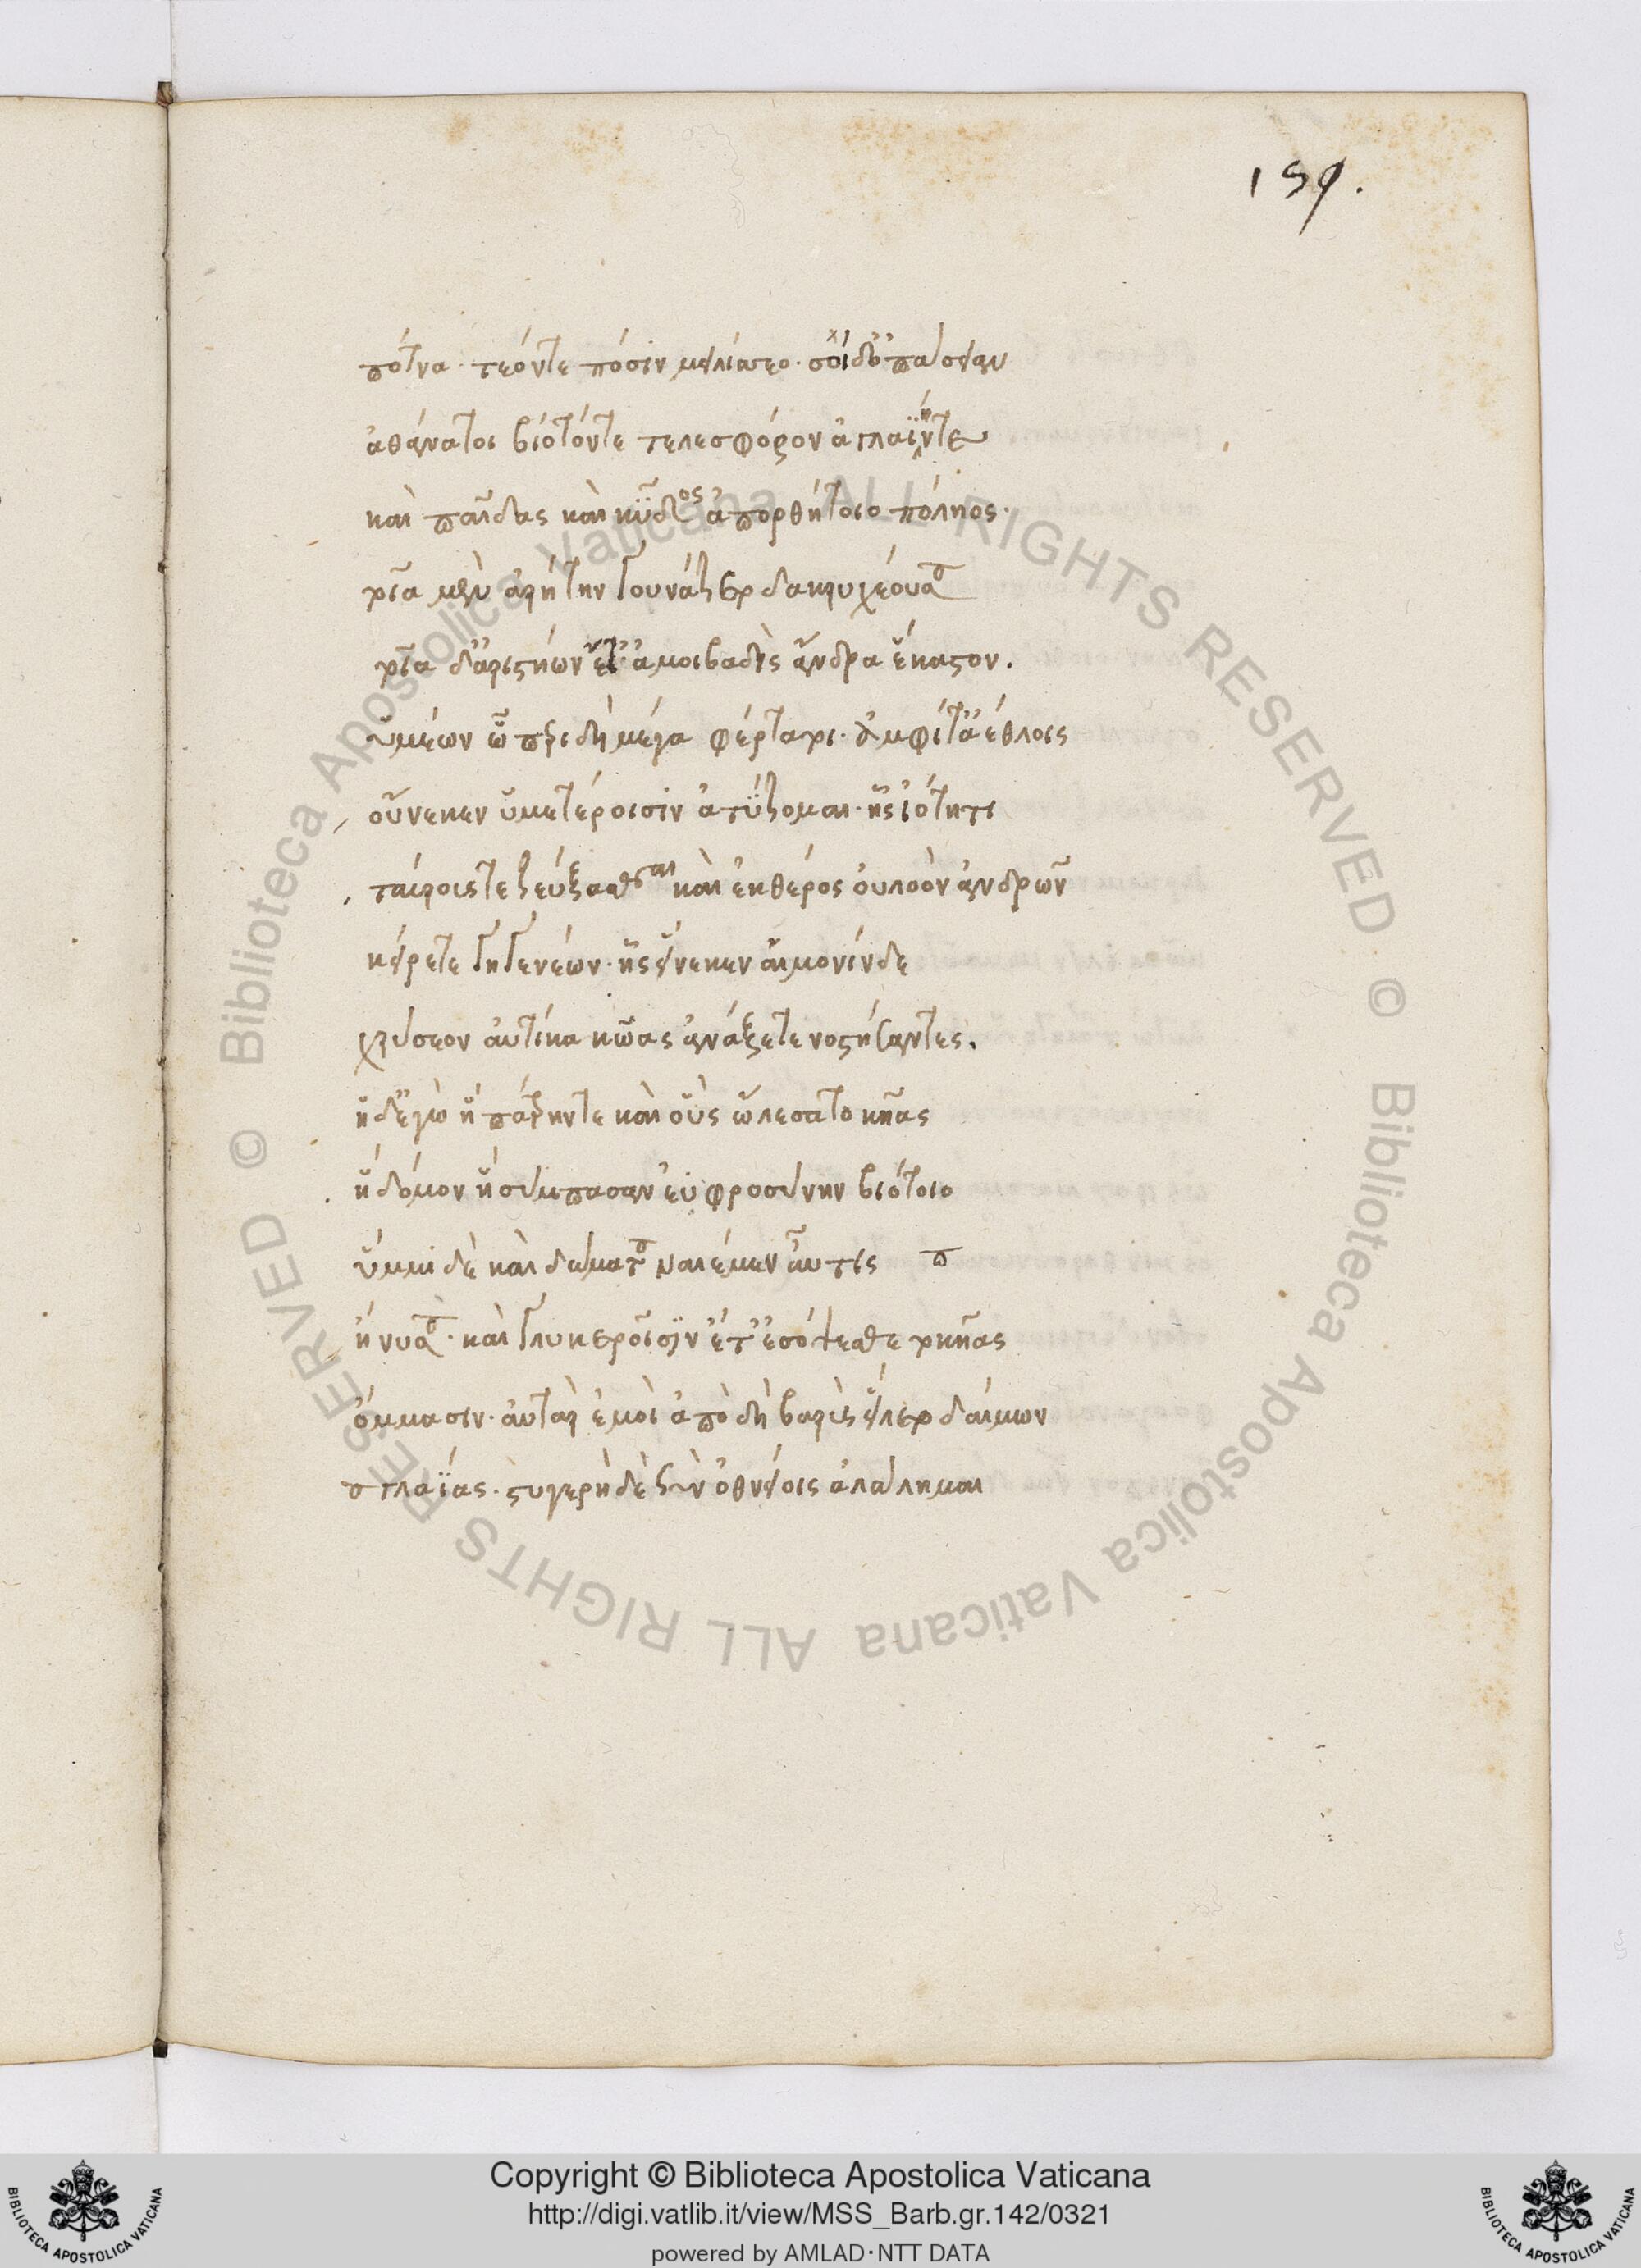 159.
πότνα· τεόντε πόσιν μειλίσσεο· σοὶ δ' ὀπάσειαν
ἀθάνατοι βίοτόντε τελεσφόρον ἀγλαΐηντε
καὶ παῖδας καὶ κῦδος ἀπορθήτοιο πόληος·
τοῖα μὲν ἀρήτην γουνάζετο δακρυχέουσα
τοῖα δ' ἀριστήων ἐπ' ἀμοιβαδὶς ἄνδρα ἕκαστον.
ὑμέων ὦ πέρι δὴ μέγα φέρτατοι· ἀμφί τ' ἀέθλοις
οὕνεκεν ὑμετέροισιν ἀτύζομαι· ἧς ἰότητι
ταύροις τε ζεύξασθαι καὶ ἐκ θέρος οὐλοὸν ἀνδρῶν
κείρετε γηγενέων· ἧς εἵνεκεν αἱμονίνδε
χρύσεον αὐτίκα κῶας ἀνάξετε νοστήσαντες.
ἥδ' ἐγὼ ἣ πάτρην τε καὶ οὓς ὤλεσα τοκῆας
ἣ δόμον ἣ σύμπασαν ἐϋφροσύνην βιότοιο
ὔμμι δὲ καὶ δώματα ναιέμεν αὖτις
ἤνυσα· καὶ γλυκεροῖσιν ἔτ' ἐσόψεσθε τοκῆας
ὄμμασιν· αὐτὰρ ἐμοὶ ἀπὸ δὴ βαρὺς εἵλετο δαίμων
ἀγλαΐας· στυγερὴ δὲ σὺν ὀθνείοις ἀλάλημαι
Biblioteca Apostolica Vaticana ALL RIGHTS RESERVED ©
Biblioteca Apostolica Vaticana ALL RIGHTS RESERVED ©
Copyright © Biblioteca Apostolica Vaticana
http://digi.vatlib.it/view/MSS_Barb.gr.142/0321
powered by AMLAD·NTT DATA
BIBLIOTECA APOSTOLICA VATICANA
BIBLIOTECA APOSTOLICA VATICANA